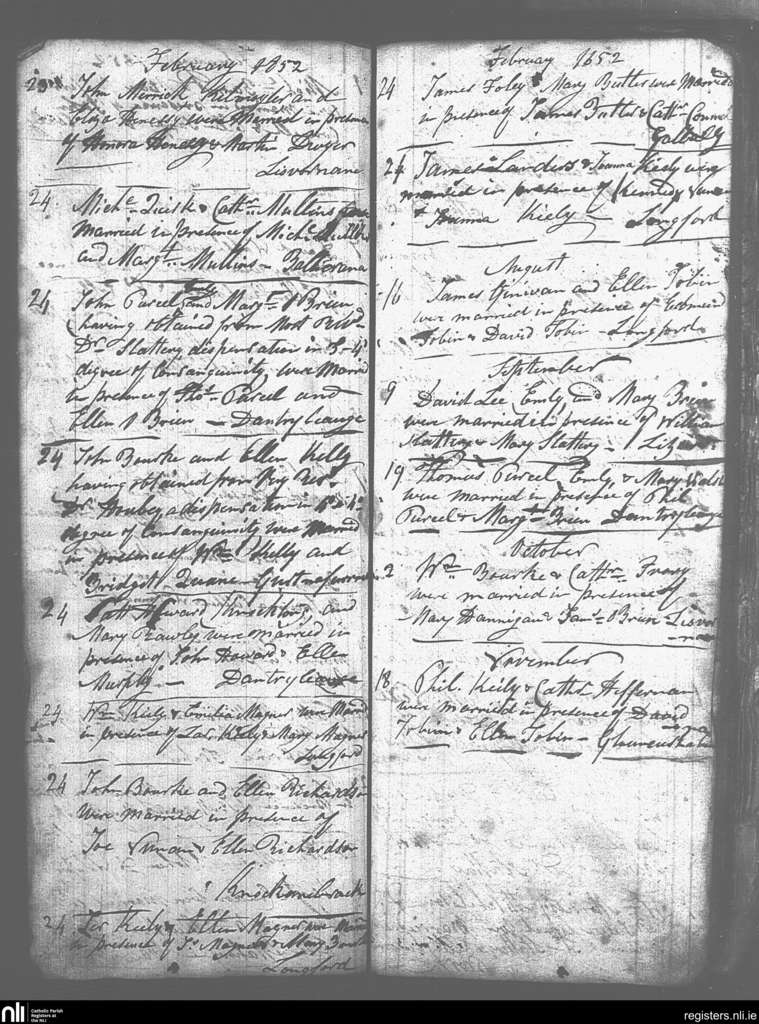 February 1852
John Merrick Kilmoyler and
Eliza Henessy were Married in presence
of Honora Henessy & Martin Dwyer
Lisvernane
24 Michl. Quirk & Cathr. Mullins were
Married in presence of Michl. Mullins
and Margt. Mullins - Ballivrana
24 John Purcel and Margt. O Brien
having obtained from Most Revd.
Dr. Slattery dispensation in 3 - 4
degree of Consanguinity were Married
in presence of Thos. Purcel and
Ellen O Brien - Dantryleague
24 John Bourke and Ellen Kelly
having obtained from Very Revd.
Dr. a dispensation in
degree of Consanguinity were Married
in presence of Wm. Kelly and
Bridget Quane -
24 Patt Howard (Knocklong) and
Mary Frawley were married in
presence of John Howard & Ellen
Murphy - Dantryleague
24 Wm. Kiely & Emilia Magner were Married
in presence of Lar. Kiely & Mary Magner
Longford
24 John Bourke and Ellen Richardson
were married in presence of
Joe & Ellen Richardson
24 Lar Kiely & Ellen Magner were Married
in presence of Js. Magner & Mary
Longford
February 1852
24 James Foley & Mary Butler were Married
in presence of James Butler & Cathr.
Galbally
24 James Landers & Joanna Kiely were
married in presence of
& Joanna Kiely - Longford
August
16 James and Ellen Tobin
were married in presence of Edmund
Tobin & David Tobin - Longford
September
9 David Lee Emly and Mary Brien
were married in presence of William
Slattery & Mary Slattery -
19 Thomas Purcel Emly, & Mary
were married in presence of Phil
Purcel & Margt. Brien Dantryleague
October
2 Wm. Bourke & Cathr.
were married in presence of
Mary Hannigan & Jams. O Brien Lisver-
nane
November
18 Phil. Kiely & Cathr. Heffernan
were married in presence of David
Tobin & Ellen Tobin -
nli
Catholic Parish
Registers at
the NLI
registers.nli.ie